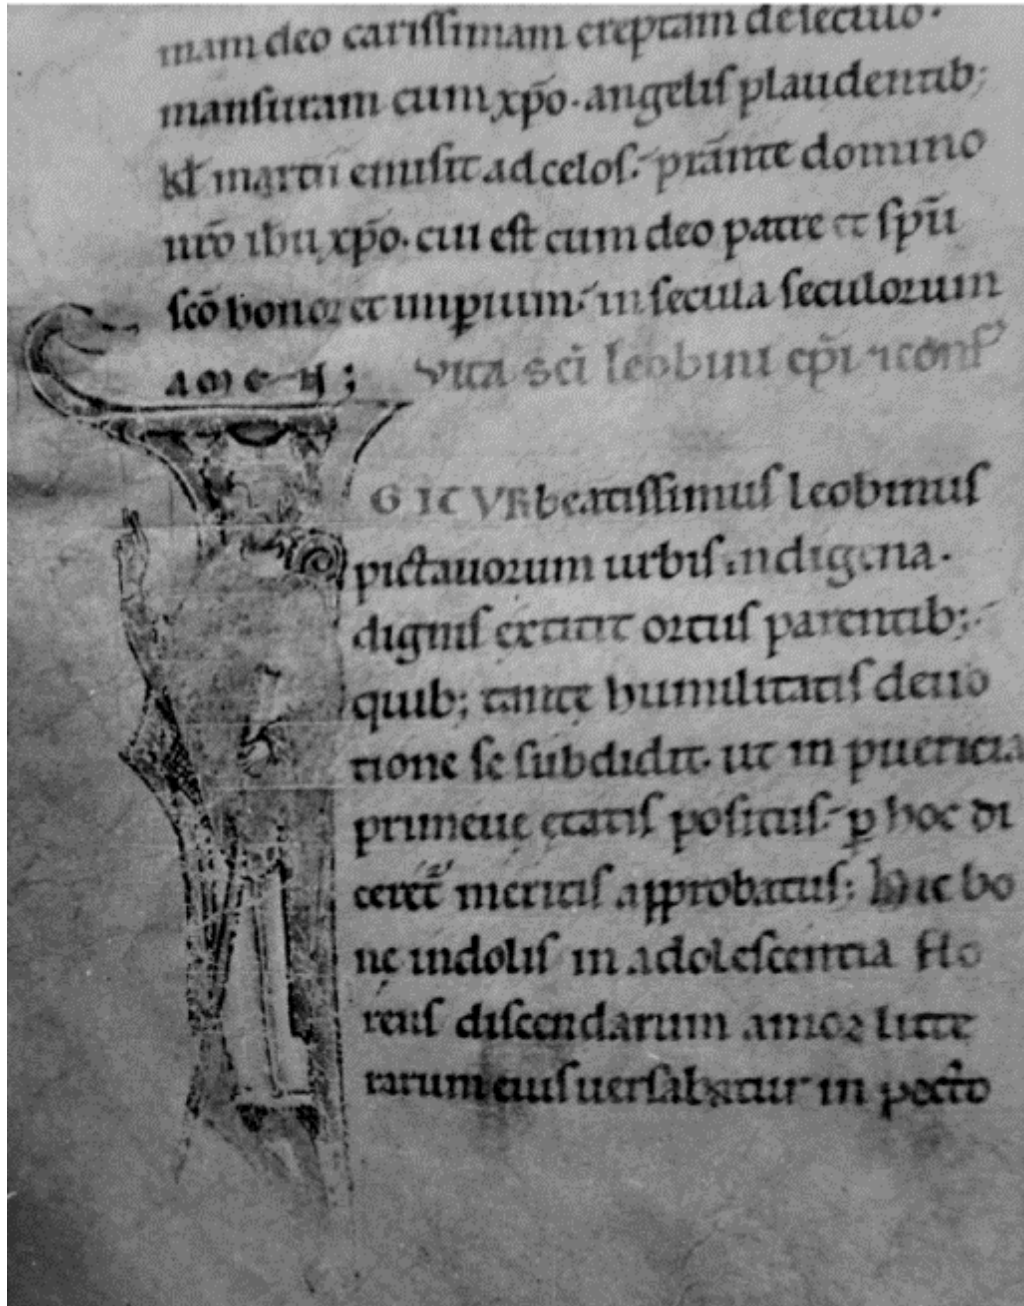 mam deo carissimam ereptam de seculo.
mansuram cum xp̄o. angelis plaudentib;
kł martii emisit ad celos. prs̄tante domino
nr̄o ih̄u xp̄o. cui est cum deo patre et sp̄u
sc̄o honor et imꝑium. in secula seculorum
AMEN;
Vita sc̄i leobini ep̄i ⁊ conf̄
GITVR beatissimus leobinus
pictauorum urbis indigena.
dignis extitit ortus parentib;
quib; tantę humilitatis deuo
tione se subdidit. ut in puericia
primeuę ętatis positus. ꝑ hoc di
ceret᷑ meritis approbatus; Hic bo
nę indolis in adolescentia flo
rens discendarum amor litte
rarum eius uersabatur in pecto